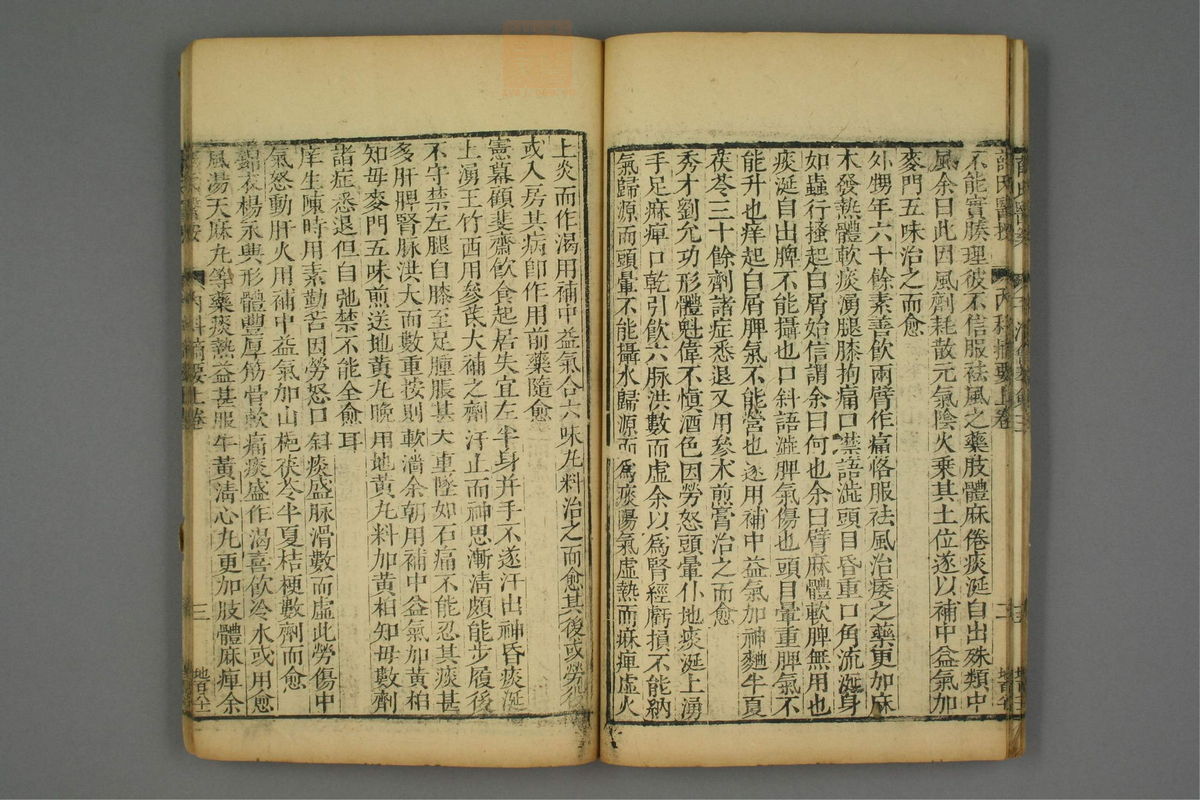 薛氏醫按 內科摘要上卷 二
不能實腠理彼不信服祛風之藥肢體麻倦痰涎自出殊類中
風余曰此因風劑耗散元氣陰火乘其土位遂以補中益氣加
麥門五味治之而愈
外甥年六十餘素善飲兩臂作痛恪服祛風治痿之藥更加麻
木發熱體軟痰湧腿膝拘痛口噤語澁頭目昏重口角流涎身
如蟲行搔起白屑始信謂余曰何也余曰臂麻體軟脾無用也
痰涎自出脾不能攝也口斜語澁脾氣傷也頭目暈重脾氣不
能升也痒起白屑脾氣不能營也遂用補中益氣加神麯半夏
茯苓三十餘劑諸症悉退又用參朮煎膏治之而愈
秀才劉允功形體魁偉不慎酒色因勞怒頭暈仆地痰涎上湧
手足麻痺口乾引飲六脉洪數而虛余以爲腎經虧損不能納
氣歸源而頭暈不能攝水歸源而爲痰陽氣虛熱而麻痺虛火
上炎而作渴用補中益氣合六味丸料治之而愈其後或勞役
或入房其病卽作用前藥隨愈
憲幕顧斐齋飲食起居失宜左半身并手不遂汗出神昏痰涎
上湧王竹西用參芪大補之劑汗止而神思漸清頗能步履後
不守禁左腿自膝至足腫脹甚大重墜如石痛不能忍其痰甚
多肝脾腎脉洪大而數重按則軟濇余朝用補中益氣加黃柏
知母麥門五味煎送地黃丸晚用地黃丸料加黃柏知母數劑
諸症悉退但自弛禁不能全愈耳
庠生陳時用素勤苦因勞怒口斜痰盛脉滑數而虛此勞傷中
氣怒動肝火用補中益氣加山梔茯苓半夏桔梗數劑而愈
錦衣楊永興形體豐厚筋骨軟痛痰盛作渴喜飲冷水或用愈
風湯天麻丸等藥痰熱益甚服牛黃淸心丸更加肢體麻痺余
內科摘要上卷 三